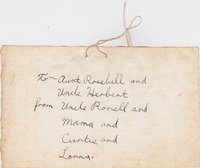 To ~ Aunt Rosebell and
Uncle Herbert
from Uncle Ronell and
Mama and
Curtis and
Lonna.